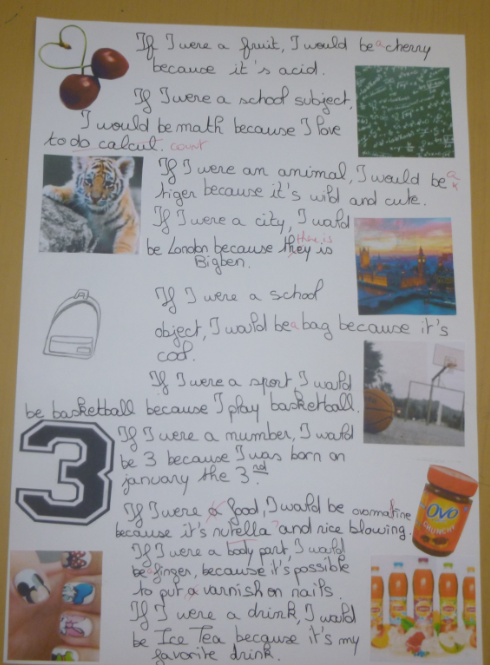 If I were a fruit, I would be a cherry
because it's acid.
If I were a school subject,
I would be math because I love
to do calcul. count
If I were an animal, I would be a
tiger because it's wild and cute.
If I were a city, I would
there is
be London because they is
Bigben.
If I were a school
object, I would be a bag because it's
cool.
If I were a sport, I would
be basketball because I play basketball.
3
If I were a number, I would
be 3 because I was born on
january the 3nd
If I were a food, I would be ovomaltine
because it's nutella ? and rice blowing.
OVO
CRUNCHY
If I were a body part, I would
be a finger, because it's possible
to put a varnish on nails.
If I were a drink, I would
be Ice Tea because it's my
favorite drink.